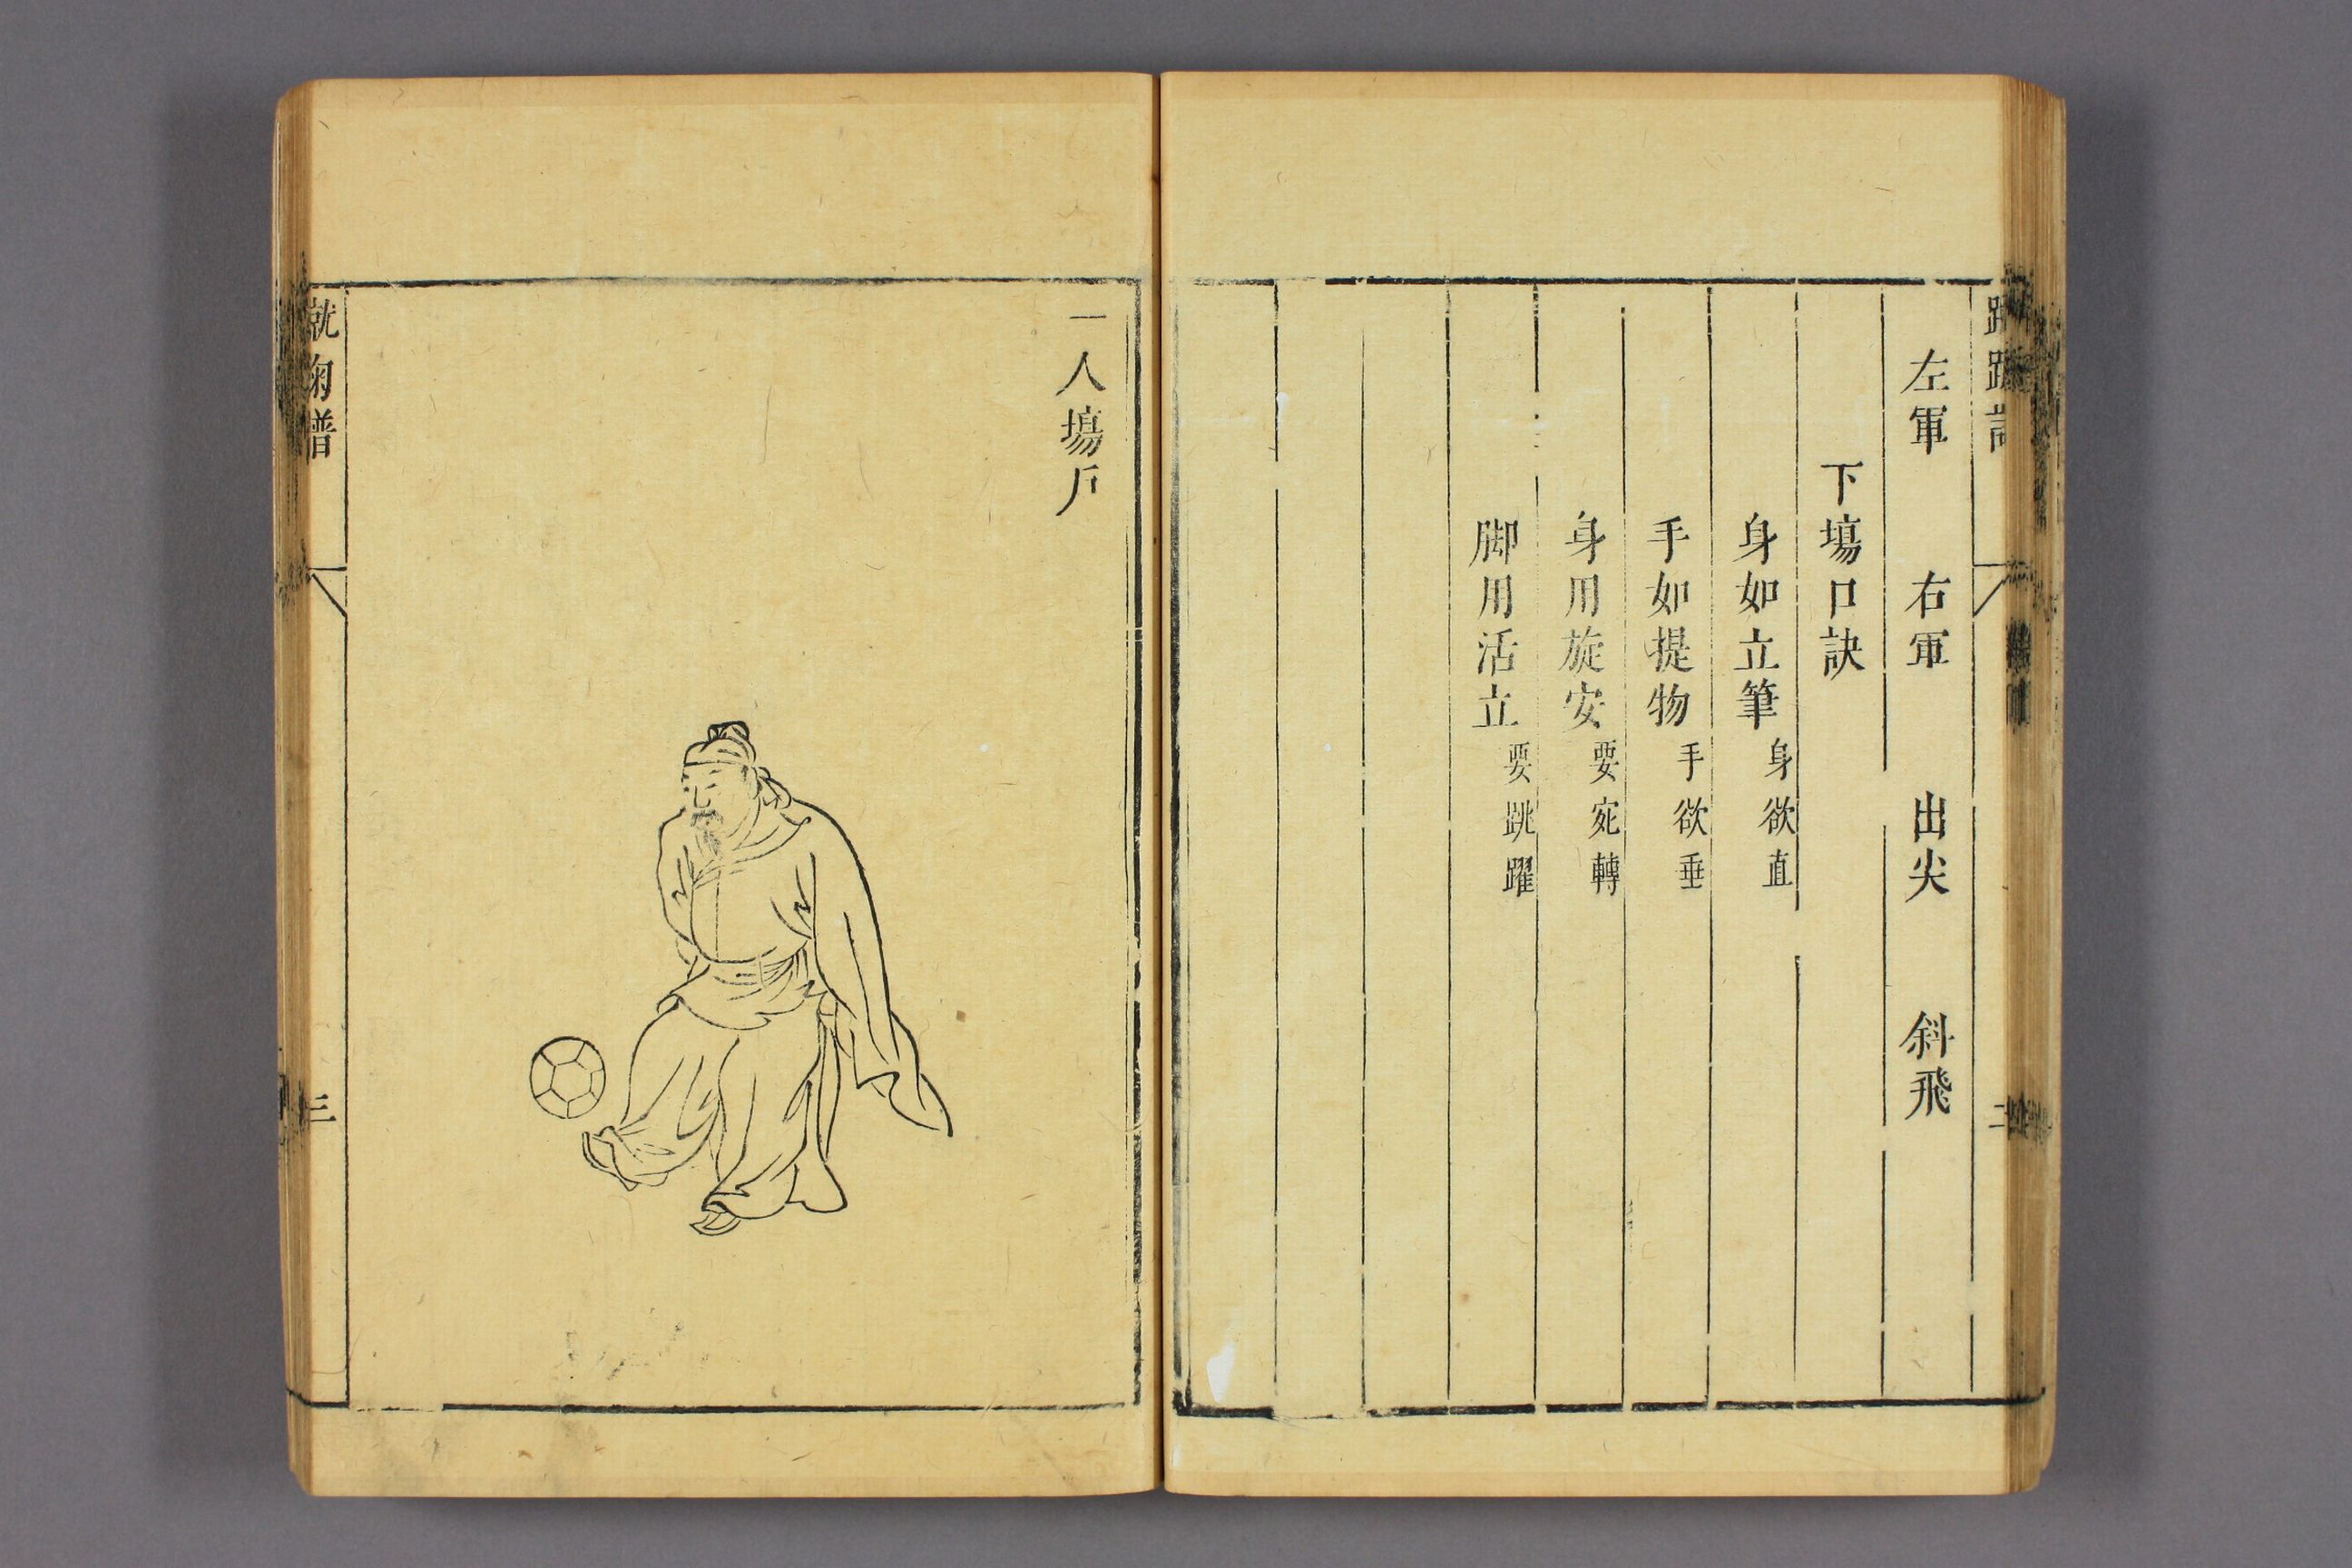 左軍 右軍 出尖 斜飛
下塲口訣
身如立筆 身欲直
手如提物 手欲垂
身用旋安 要宛轉
脚用活立 要跳躍
二
一人塲戶
蹴鞠譜
三